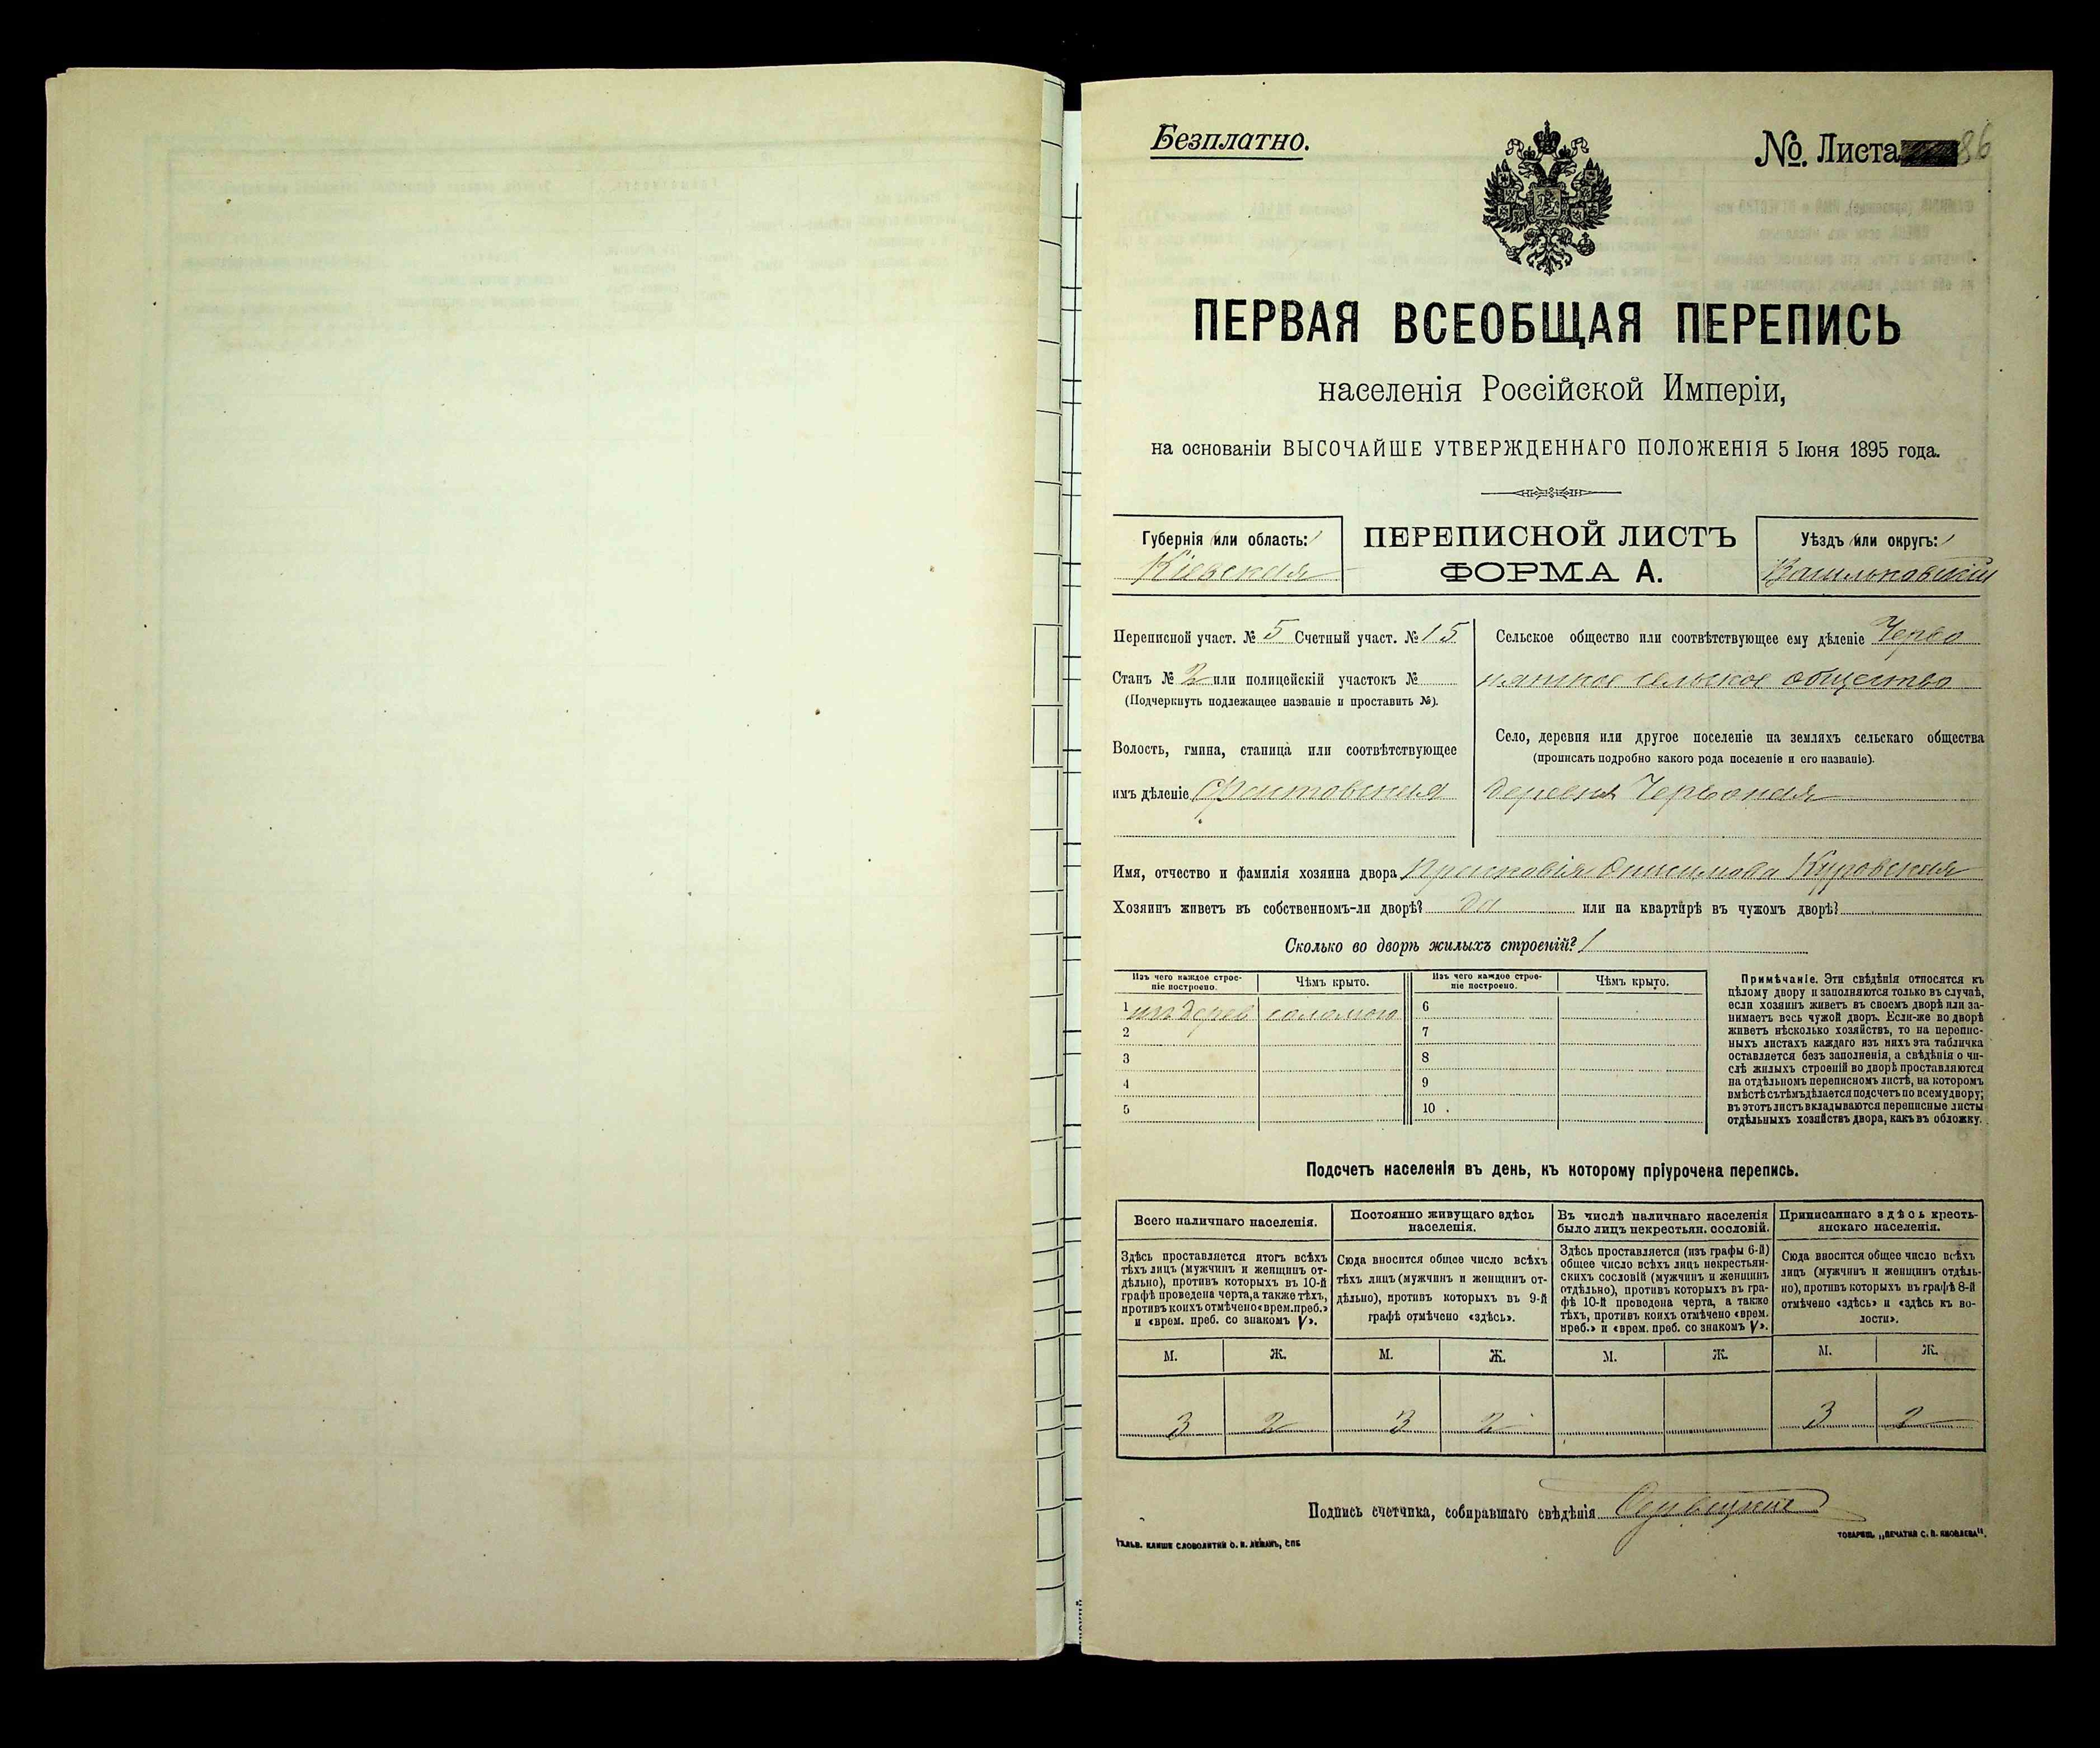 Безплатно.
№ Листа 86
ПЕРВАЯ ВСЕОБЩАЯ ПЕРЕПИСЬ
населенія Россійской Имперіи,
на основаніи ВЫСОЧАЙШЕ УТВЕРЖДЕННАГО ПОЛОЖЕНІЯ 5 Іюня 1895 года.
Губернія или область:
Кіевская
ПЕРЕПИСНОЙ ЛИСТЪ
ФОРМА А.
Уѣздъ или округъ:
Васильковскій
Переписной участ. № 5 Счетный участ. № 15
Станъ № 2 или полицейскій участокъ №
(Подчеркнуть подлежащее названіе и проставить №).
Волость, гмина, станица или соотвѣтствующее
имъ дѣленіе Фастовская
Сельское общество или соотвѣтствующее ему дѣленіе Черво
нянское сельское общество
Село, деревня или другое поселеніе на земляхъ сельскаго общества
(прописать подробно какого рода поселеніе и его названіе).
деревня Червоная
Имя, отчество и фамилія хозяина двора Прасковія Онисимова Куровская
Хозяинъ живетъ въ собственномъ-ли дворѣ? да или на квартирѣ въ чужомъ дворѣ?
Сколько во дворѣ жилыхъ строеній? 1
Изъ чего каждое строе-
ніе построено.
Чѣмъ крыто.
Изъ чего каждое строе-
ніе построено.
Чѣмъ крыто.
1 изъ дерев соломою 6
2 7
3 8
4 9
5 10
Примѣчаніе. Эти свѣдѣнія относятся къ
цѣлому двору и заполняются только въ случаѣ,
если хозяинъ живетъ въ своемъ дворѣ или за-
нимаетъ весь чужой дворъ. Если-же во дворѣ
живетъ нѣсколько хозяйствъ, то на перепис-
ныхъ листахъ каждаго изъ нихъ эта табличка
оставляется безъ заполненія, а свѣдѣнія о чи-
слѣ жилыхъ строеній во дворѣ проставляются
на отдѣльномъ переписномъ листѣ, на которомъ
вмѣстѣ съ тѣмъ дѣлается подсчетъ по всему двору;
въ этотъ листъ вкладываются переписные листы
отдѣльныхъ хозяйствъ двора, какъ въ обложку.
Подсчетъ населенія въ день, къ которому пріурочена перепись.
Всего наличнаго населенія.
Здѣсь проставляется итогъ всѣхъ
тѣхъ лицъ (мужчинъ и женщинъ от-
дѣльно), противъ которыхъ въ 10-й
графѣ проведена черта, а также тѣхъ,
противъ коихъ отмѣчено «врем. преб.»
и «врем. преб. со знакомъ V».
Постоянно живущаго здѣсь
населенія.
Сюда вносится общее число всѣхъ
тѣхъ лицъ (мужчинъ и женщинъ от-
дѣльно), противъ которыхъ въ 9-й
графѣ отмѣчено «здѣсь».
Въ числѣ наличнаго населенія
было лицъ некрестьян. сословій.
Здѣсь проставляется (изъ графы 6-й)
общее число всѣхъ лицъ некрестьян-
скихъ сословій (мужчинъ и женщинъ
отдѣльно), противъ которыхъ въ гра-
фѣ 10-й проведена черта, а также
тѣхъ, противъ коихъ отмѣчено «врем.
преб.» и «врем. преб. со знакомъ V».
Приписаннаго здѣсь кресть-
янскаго населенія.
Сюда вносится общее число всѣхъ
лицъ (мужчинъ и женщинъ отдѣль-
но), противъ которыхъ въ графѣ 8-й
отмѣчено «здѣсь» и «здѣсь къ во-
лости».
М. Ж. М. Ж. М. Ж. М. Ж.
3 2 3 2 3 2
Подпись счетчика, собиравшаго свѣдѣнія
ГАЛЬВ. КЛИШЕ СЛОВОЛИТНИ О. И. ЛЕМАНЪ, СПБ
ТОВАРИЩ. „ПЕЧАТНЯ С. П. ЯКОВЛЕВА“.